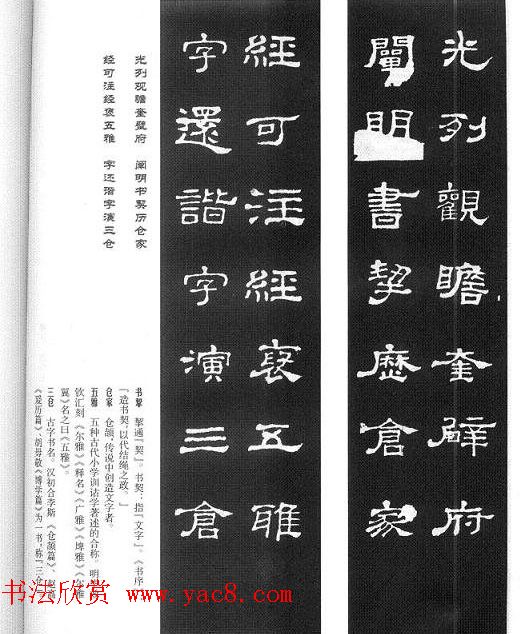 光列觀瞻奎壁府
闡明書挈歷倉家
經可注經裒五雅
字還諧字演三倉
光列观瞻奎壁府 阐明书挈历仓家
经可注经裒五雅 字还谐字演三仓
书挈 挈通「契」。书契：指「文字」。《书序》
「造书契，以代结绳之政。」
仓家 仓颉，传说中创造文字者。
五雅 五种古代小学训诂学著述的合称。明
钦汇刻《尔雅》《释名》《广雅》《埤雅》《尔雅
翼》名之曰《五雅》。
三仓 古字书名。汉初合李斯《仓颉篇》、赵高
《爰历篇》、胡毋敬《博学篇》为一书，称「三仓」
书法欣赏 www.yac8.com